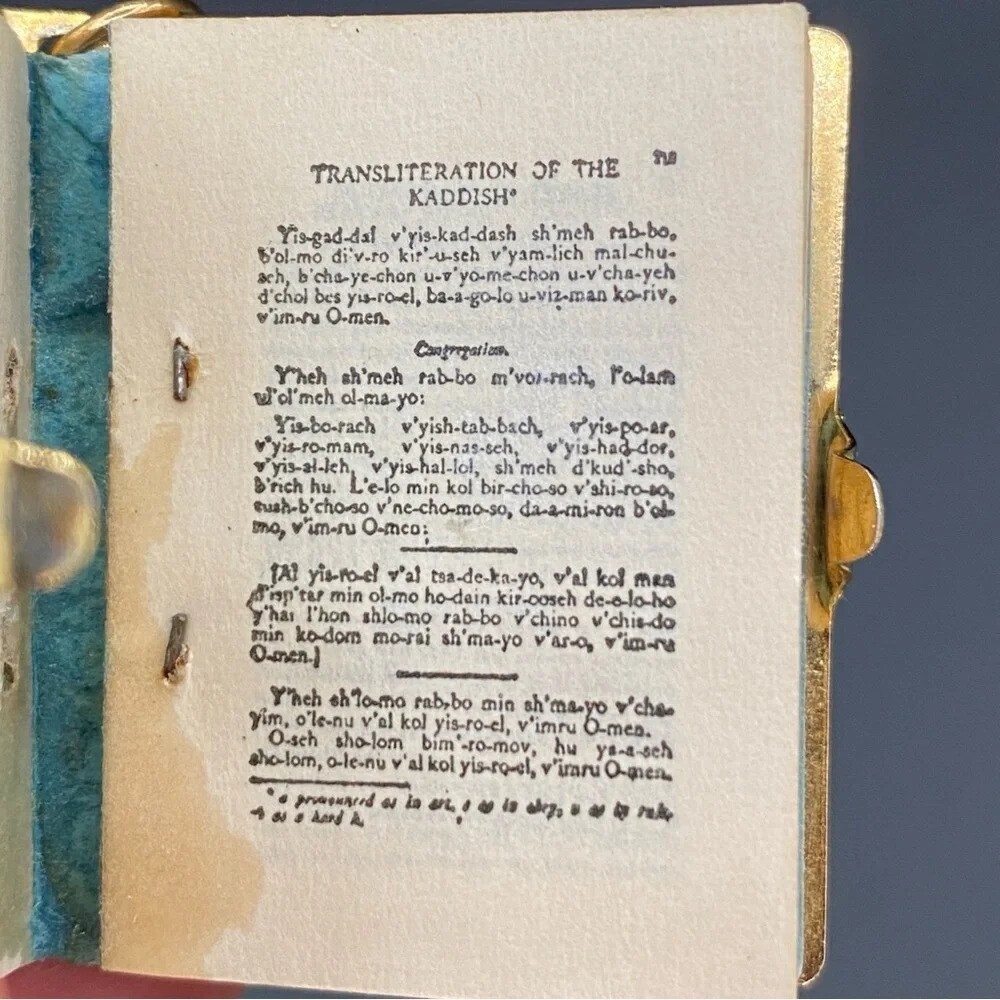 TRANSLITERATION OF THE
KADDISH*
Yis-gad-dal v'yis-kad-dash sh'meh rab-bo,
b'ol-mo di'v-ro kir'-u-seh v'yam-lich mal-chu-
seh, b'cha-ye-chon u-v'yo-me-chon u-v'cha-yeh
d'chol bes yis-ro-el, ba-a-go-lo u-viz-man ko-riv,
v'im-ru O-men.
Congregation.
Y'heh sh'meh rab-bo m'vor-rach, l'o-lam
ul'ol'meh ol-ma-yo:
Yis-bo-rach v'yish-tab-bach, v'yis-po-ar,
v'yis-ro-mam, v'yis-nas-seh, v'yis-had-dor,
v'yis-al-leh, v'yis-hal-lol, sh'meh d'kud'-sho,
b'rich hu. L'e-lo min kol bir-cho-so v'shi-ro-so,
tush-b'cho-so v'ne-cho-mo-so, da-a-mi-ron b'ol-
mo, v'im-ru O-men:
[Al yis-ro-el v'al tsa-de-ka-yo, v'al kol man
d'isp'tar min ol-mo ho-dain kir-ooseh de-e-lo-ho
y'hai l'hon shlo-mo rab-bo v'chino v'chis-do
min ko-dom mo-rai sh'ma-yo v'ar-o, v'im-ru
O-men.]
Y'heh sh'lo-mo rab-bo min sh'ma-yo v'cha-
yim, o'le-nu v'al kol yis-ro-el, v'imru O-men.
O-seh sho-lom bim'-ro-mov, hu ya-a-seh
sho-lom, o-le-nu v'al kol yis-ro-el, v'imru O-men.
* a pronounced as in art, e as in obey, u as in rule,
as a hard h.